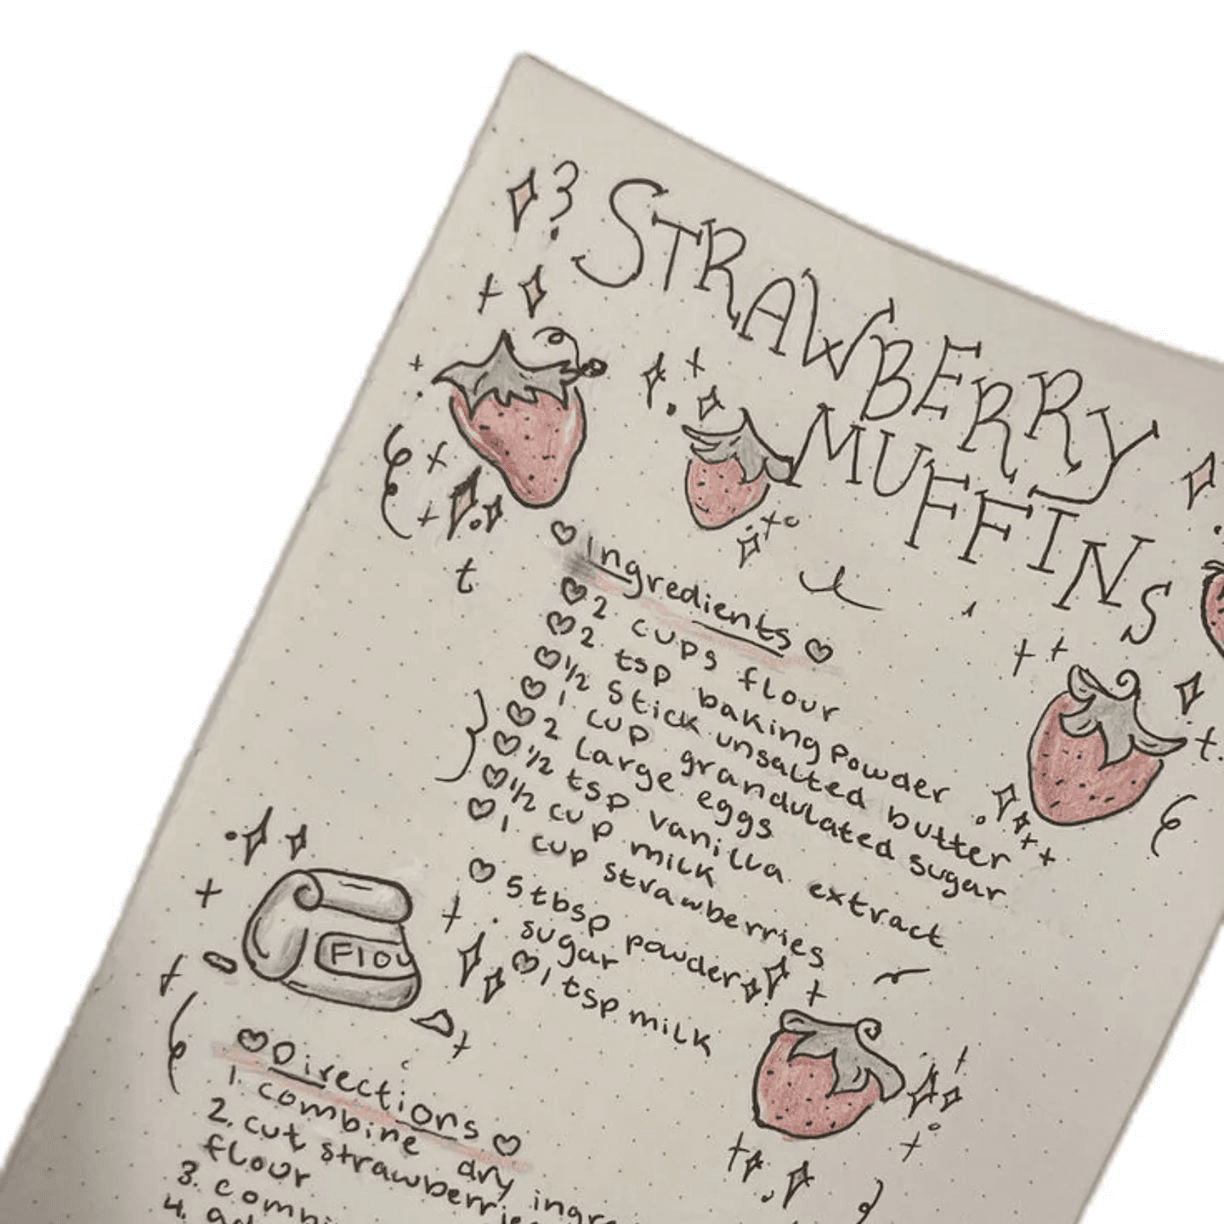 STRAWBERRY
MUFFINS
Ingredients
2 cups flour
2 tsp baking powder
1/2 stick unsalted butter
1 cup grandulated sugar
2 large eggs
1/2 tsp vanilla extract
1/2 cup milk
1 cup strawberries
5 tbsp powder
sugar
1 tsp milk
Flou
Directions
1. combine dry ingre
2. cut strawberries
flour
3. combi
4. ad